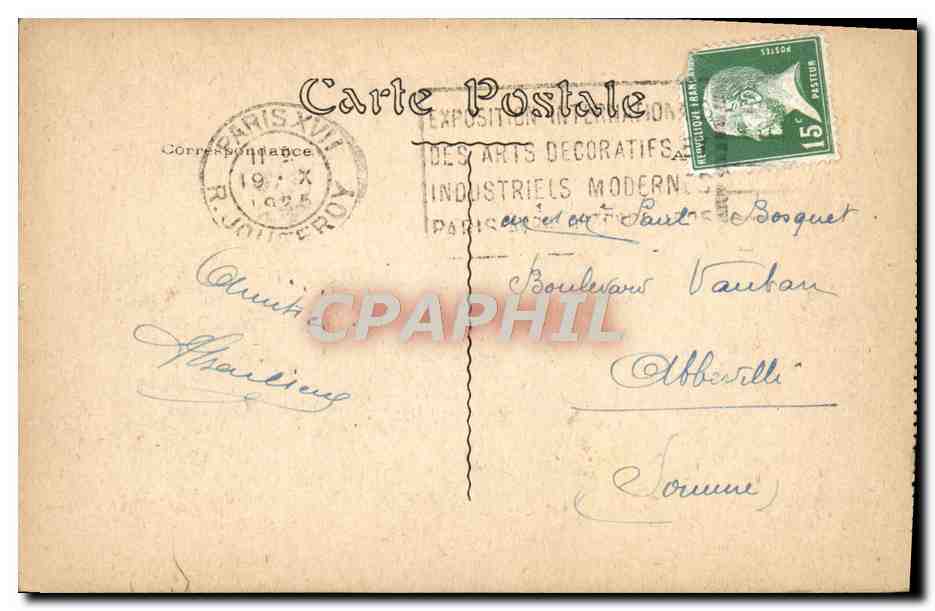 Carte Postale
Correspondance
PARIS XVII
R. JOUFFROY
EXPOSITION INTERNATION
DES ARTS DECORATIFS
INDUSTRIELS MODERNES
PARIS
REPUBLIQUE FRANÇAISE
POSTES
PASTEUR
15c
Bosquet
Boulevard Vauban
Abbeville
(Somme)
Amitié
CPAPHIL